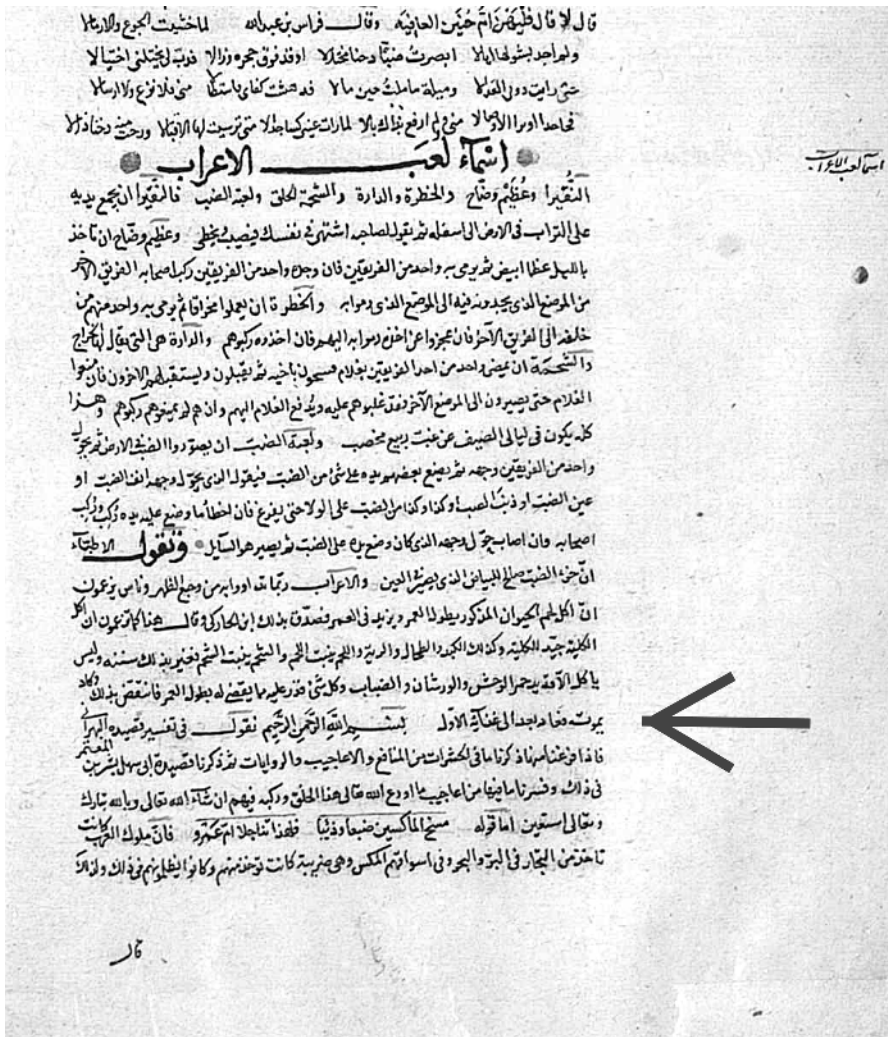 قال لا قال فليهن ام حنين العافية وقال فراس بن عبدالله لما خشيت الجوع والارمالا
ولم اجد بشولها بلالا ابصرت ضبا دحنا مختالا اوفد فوق جحره وذالا فدب لي يختلني اختيالا
حتى رايت دوني القذالا وميلة ما ملت حين مالا فدهشت كفاي فاستطالا مني فلا نزع ولا ارسالا
مني ولم ارفع بذاك بالا لما رات عيني
اسماء لعب الاعراب
اسماء لعب الاعراب
النقيرا وعظيم وضاح والخطرة والدارة والشحمة الحلق ولعبة الضب فالنقيرا ان يجمع يديه
على التراب في الارض الى اسفله ثم يقول لصاحبه اشتهى في نفسك فيصيب ويخطي وعظيم وضاح ان تاخذ
بالليل عظما ابيض ثم يرمى به واحد من الفريقين فان وجده واحد من الفريقين ركب اصحابه الفريق الآخر
من الموضع الذى يجدونه فيه الى الموضع الذى رموا به والخطرة ان يعملوا مخراقا ثم يرمى به واحد منهم من
خلفه الى الفريق الآخر فان عجزوا عن اخذه رموا به اليهم فان اخذوه ركبوهم والدارة هى التى يقال لها الخراج
والشحمة ان يمضى واحد من احد الفريقين بغلام فيتنحون ناحية ثم يقبلون ويستقبلهم الآخرون فان منعوا
الغلام حتى يصيرون الى الموضع الآخر فقد غلبوهم عليه ويدفع الغلام اليهم وان هم لم يمنعوهم ركبوهم وهذا
كله يكون فى ليالى الصيف عن غب ربيع مخصب ولعبة الضب ان يصوروا الضب فى الارض ثم يحول
واحد من الفريقين وجهه ثم يضع بعضهم يده على شئ من الضب فيقول الذى يحول وجهه انف الضب او
عين الضب او ذنب الضب او كذا وكذا من الضب على الولا حتى يفرغ فان اخطأ ما وضع عليه يده ركب وركب
اصحابه وان اصاب حول وجهه الذى كان وضع يده على الضب ثم يصير هو السايل وتقول الاطباء
ان خرء الضب صالح للبياض الذى يصير فى العين والاعراب ربما تداووا به من وجع الظهر وناس يزعمون
ان اكل لحم الحيوان المذكور بطول العمر ويزيد فى العمر فصدق بذلك ابن الخاركى وقال هذا كما يزعمون ان اكل
الكلية جيد للكلية وكذلك الكبد والطحال والرية واللحم ينبت اللحم والشحم ينبت الشحم فغبر بذلك سنة وليس
ياكل الا قديد حمر الوحش والورشان والضباب وكل شئ قدر عليه مما يقضى له بطول العمر فانتقض بذلك وكاد
يموت فعاد بعد الى غذائه الاول بسم الله الرحمن الرحيم نقول فى تفسير قصيدة البهرانى
فاذا فرغنا منها ذكرنا ما فى الحشرات من المنافع والاعاجيب والروايات ثم ذكرنا قصيدة ابى سهل بشر بن المعتمر
فى ذلك وفسرنا ما فيها من اعاجيب ما اودع الله تعالى هذا الخلق وركبه فيهم ان شاء الله تعالى وبالله تبارك
وتعالى استعين اما قوله مسخ الماكسين ضبعا وذئبا فلهذا تناجلا ام عمرو فان ملوك العرب كانت
تاخذ من التجار فى البر والبحر وفى اسواقهم المكس وهى ضريبة كانت توخذ منهم وكانوا يظلمونهم فى ذلك ولذلك
قال